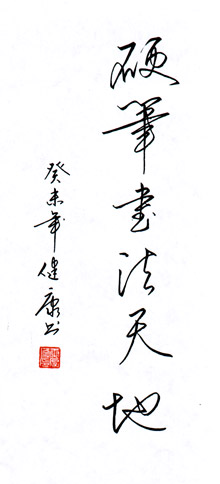 硬筆書法天地
癸未年健康书